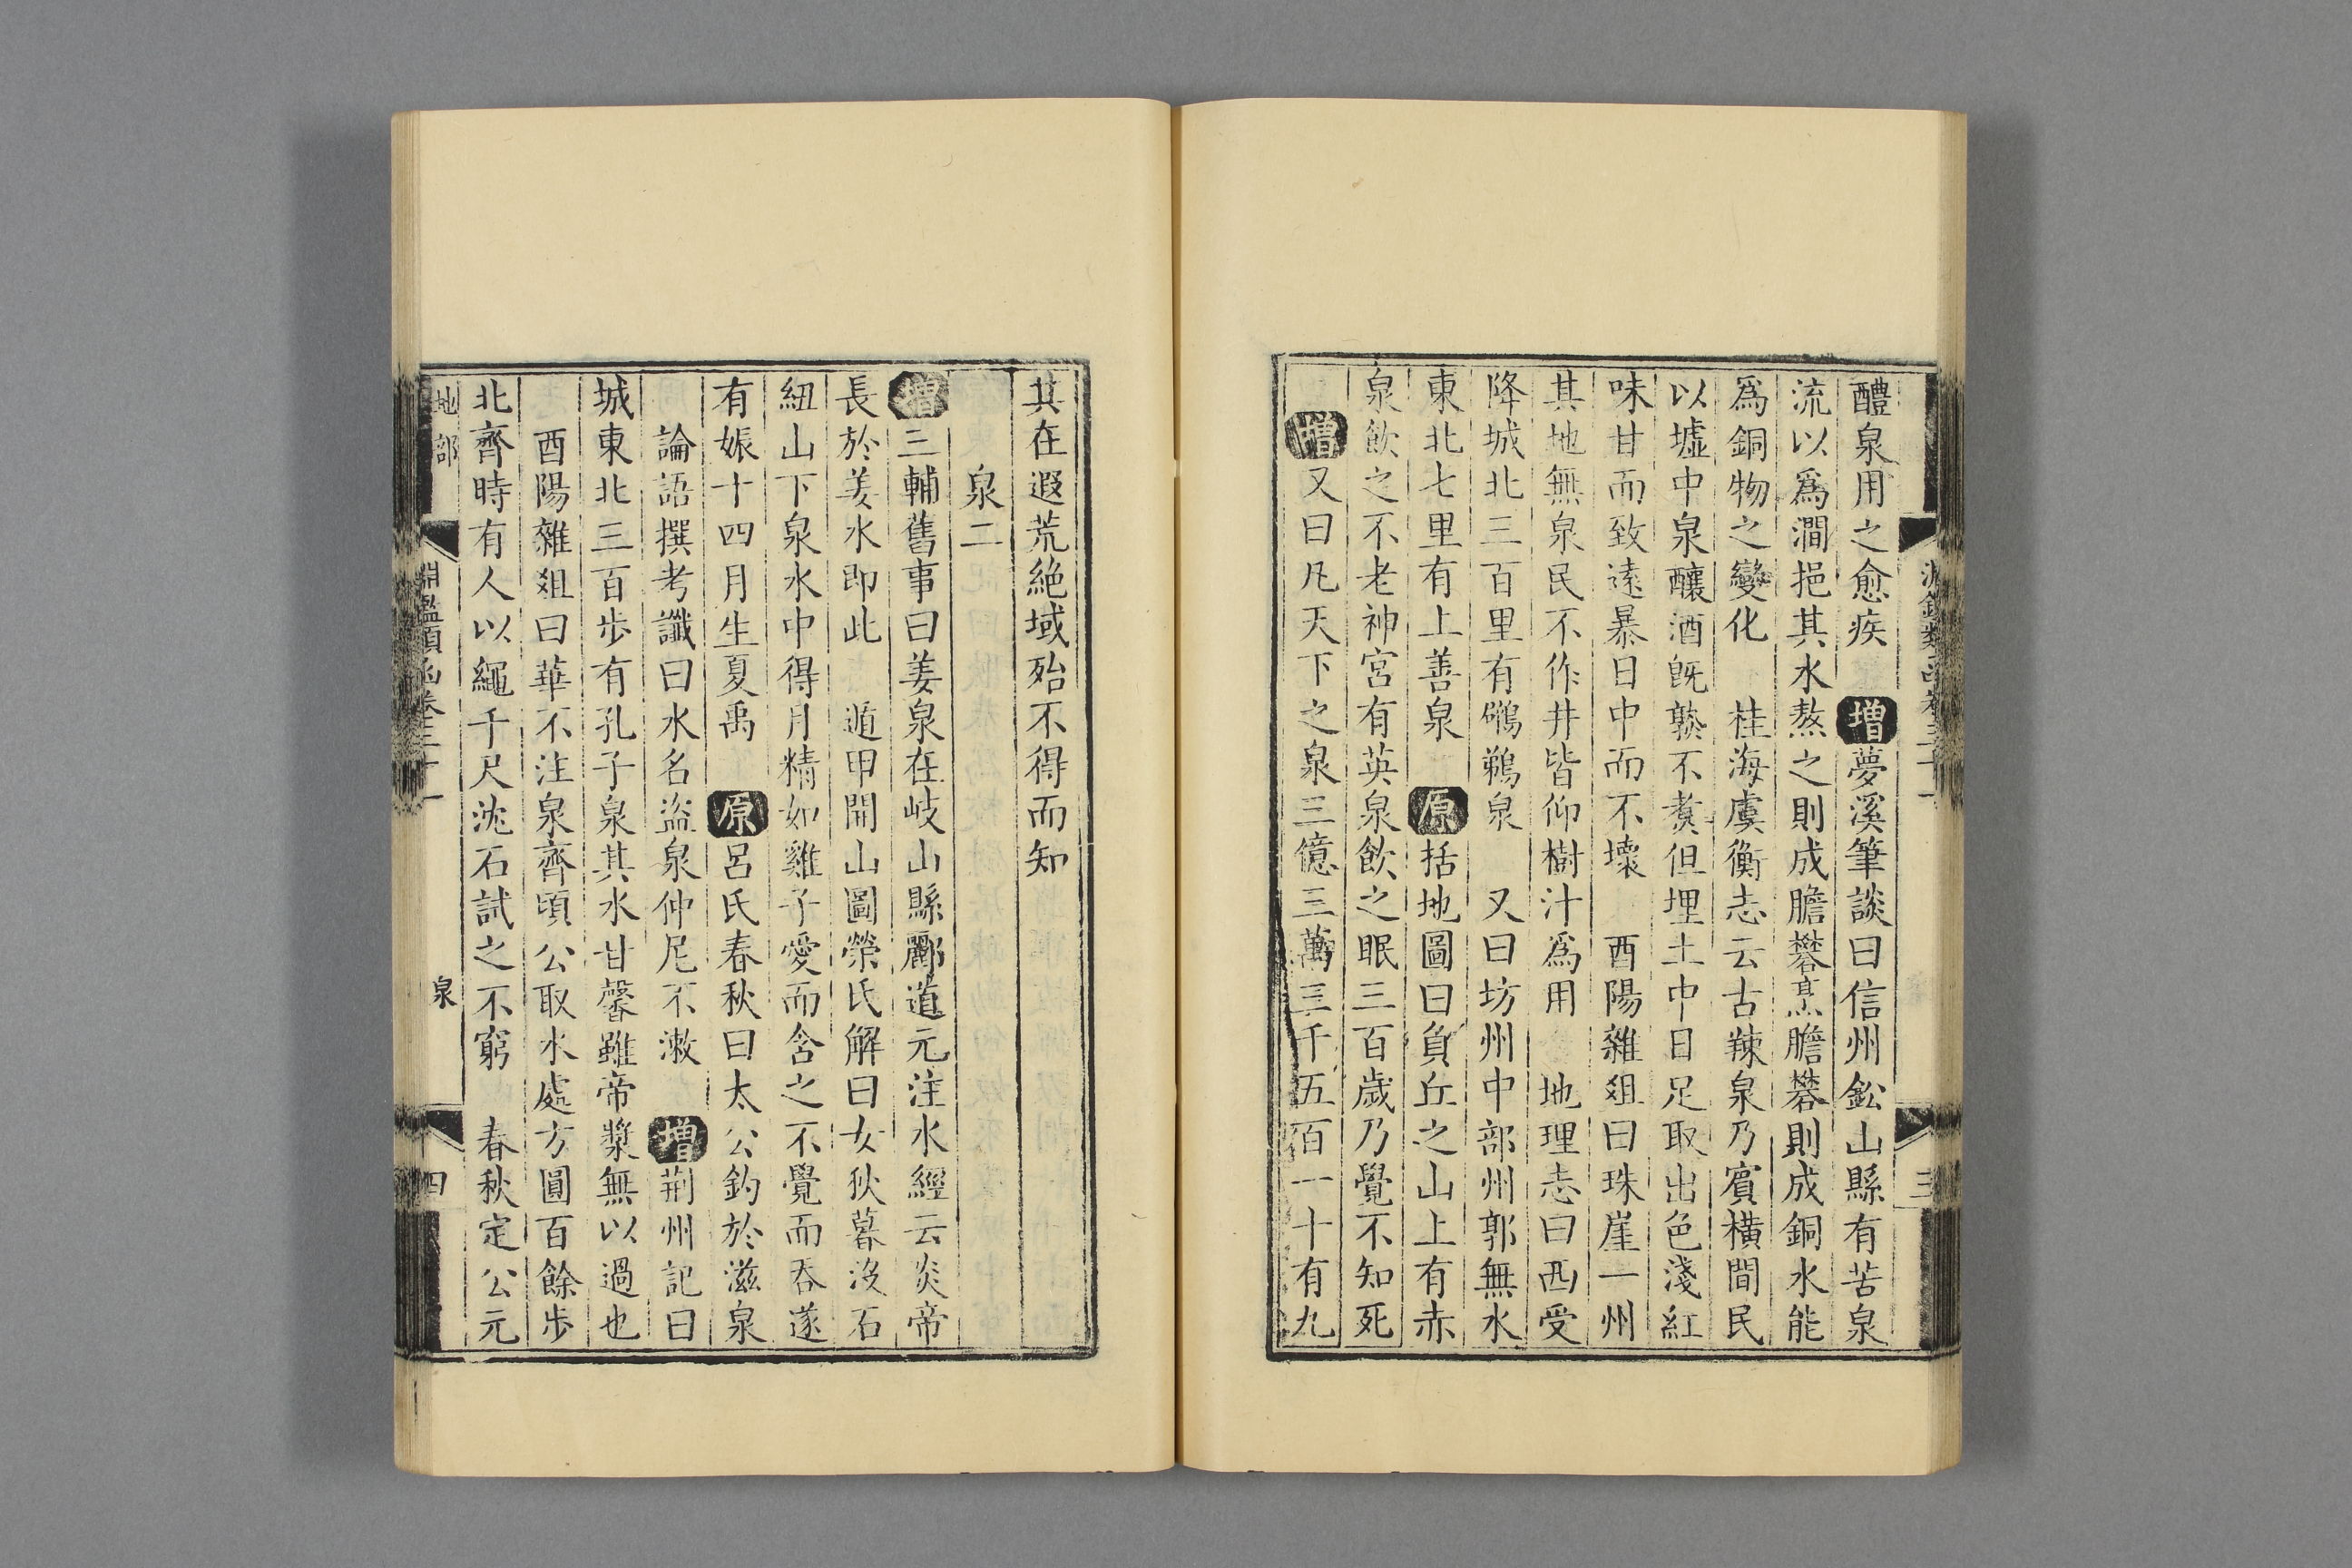 醴泉用之愈疾　增夢溪筆談曰信州鈆山縣有苦泉
流以爲澗挹其水熬之則成膽礬烹膽礬則成銅水能
爲銅物之變化　桂海虞衡志云古辣泉乃賓橫間民
以墟中泉釀酒旣熟不煑但埋土中日足取出色淺紅
味甘而致遠暴日中而不壞　酉陽雜俎曰珠崖一州
其地無泉民不作井皆仰樹汁爲用　地理志曰西受
降城北三百里有鸊鵜泉　又曰坊州中部州郭無水
東北七里有上善泉　原括地圖曰負丘之山上有赤
泉飲之不老神宮有英泉飲之眠三百歲乃覺不知死
增又曰凡天下之泉三億三萬三千五百一十有九
其在遐荒絶域殆不得而知
泉二
增三輔舊事曰姜泉在岐山縣酈道元注水經云炎帝
長於姜水即此　遁甲開山圖榮氏解曰女狄暮汲石
紐山下泉水中得月精如雞子愛而含之不覺而吞遂
有娠十四月生夏禹　原呂氏春秋曰太公釣於滋泉
論語撰考讖曰水名盜泉仲尼不漱　增荊州記曰
城東北三百步有孔子泉其水甘馨雖帝漿無以過也
酉陽雜俎曰華不注泉齊頃公取水處方圓百餘步
北齊時有人以繩千尺沈石試之不窮　春秋定公元
地部
淵鑑類函卷三十一
泉
四